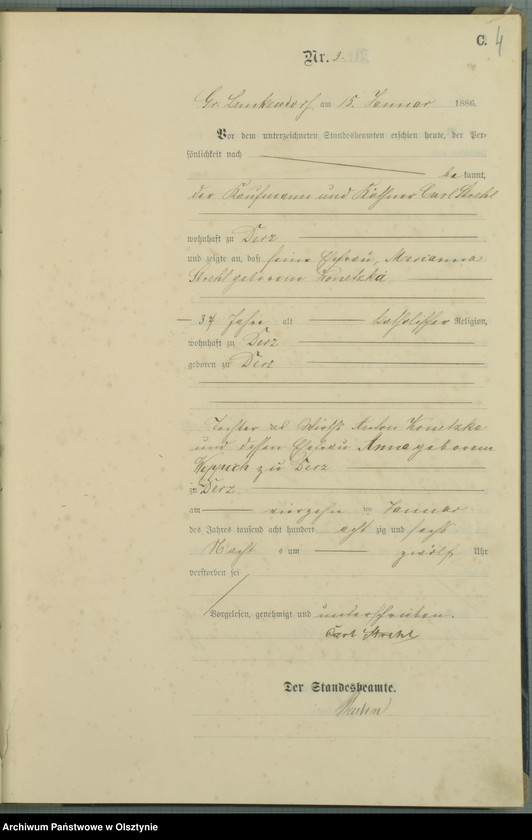 C. 4
Nr. 3.
Gr. Lemkendorf am 15. Januar 1886.
Vor dem unterzeichneten Standesbeamten erschien heute, der Per-
sönlichkeit nach
be kannt,
der Kaufmann und Käthner Carl Strehl
wohnhaft zu Derz
und zeigte an, daß seine Ehefrau, Marianna
Strehl geborene Konetzka
37 Jahre alt katholischer Religion,
wohnhaft zu Derz
geboren zu Derz
Tochter Wirths Anton Konetzka
und dessen Ehefrau Anna geborene
zu Derz
in Derz
am vierzehn ten Januar
des Jahres tausend acht hundert acht zig und sechs
Nachts um zwölf Uhr
verstorben sei
Vorgelesen, genehmigt und unterschrieben.
Carl Strehl
Der Standesbeamte.
Archiwum Państwowe w Olsztynie